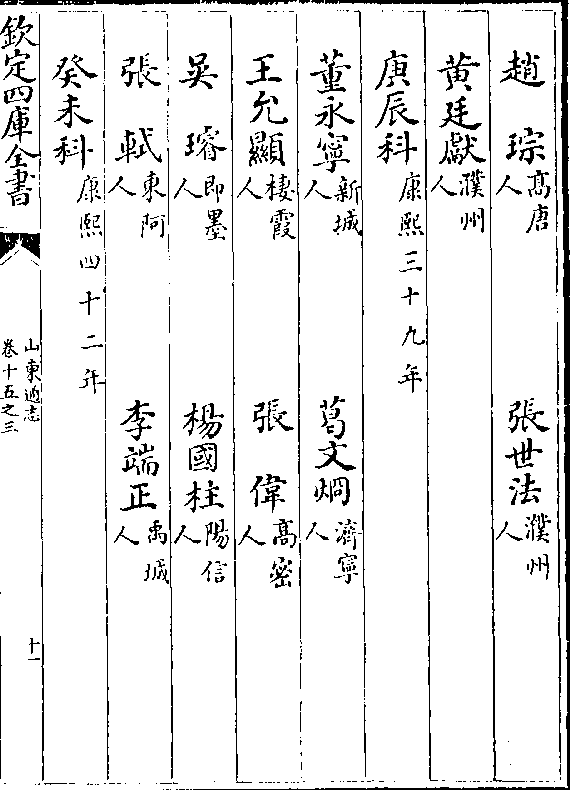 趙　琮高唐人　張世法濮州人
黃廷獻濮州人
庚辰科康熙三十九年
董永寧新城人　葛文炯濟寧人
王允顯棲霞人　張　偉高密人
吳　瑃即墨人　楊國柱陽信人
張　軾東阿人　李端正禹城人
癸未科康熙四十二年
欽定四庫全書
山東通志
卷十五之三
十一